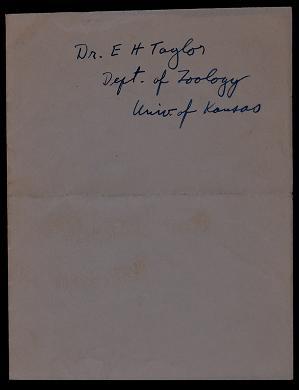 Dr. E H Taylor
Dept. of Zoology
Univ. of Kansas